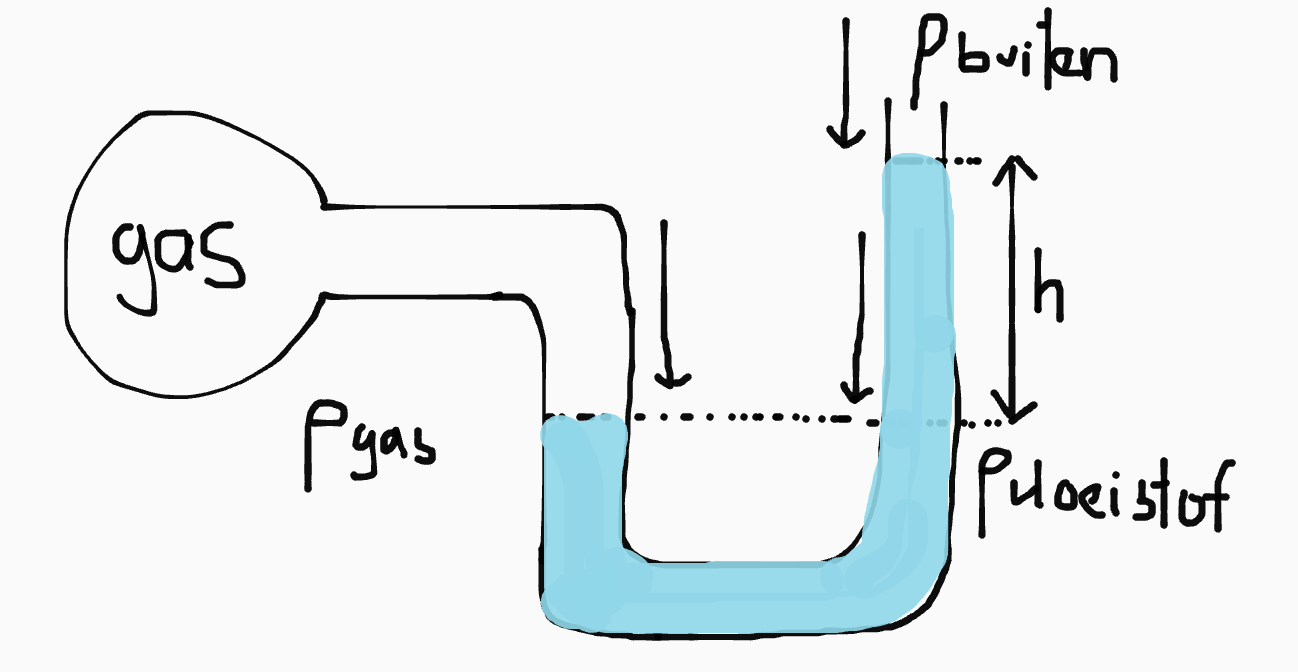 Pbuiten
gas
h
Pgas
Pvloeistof